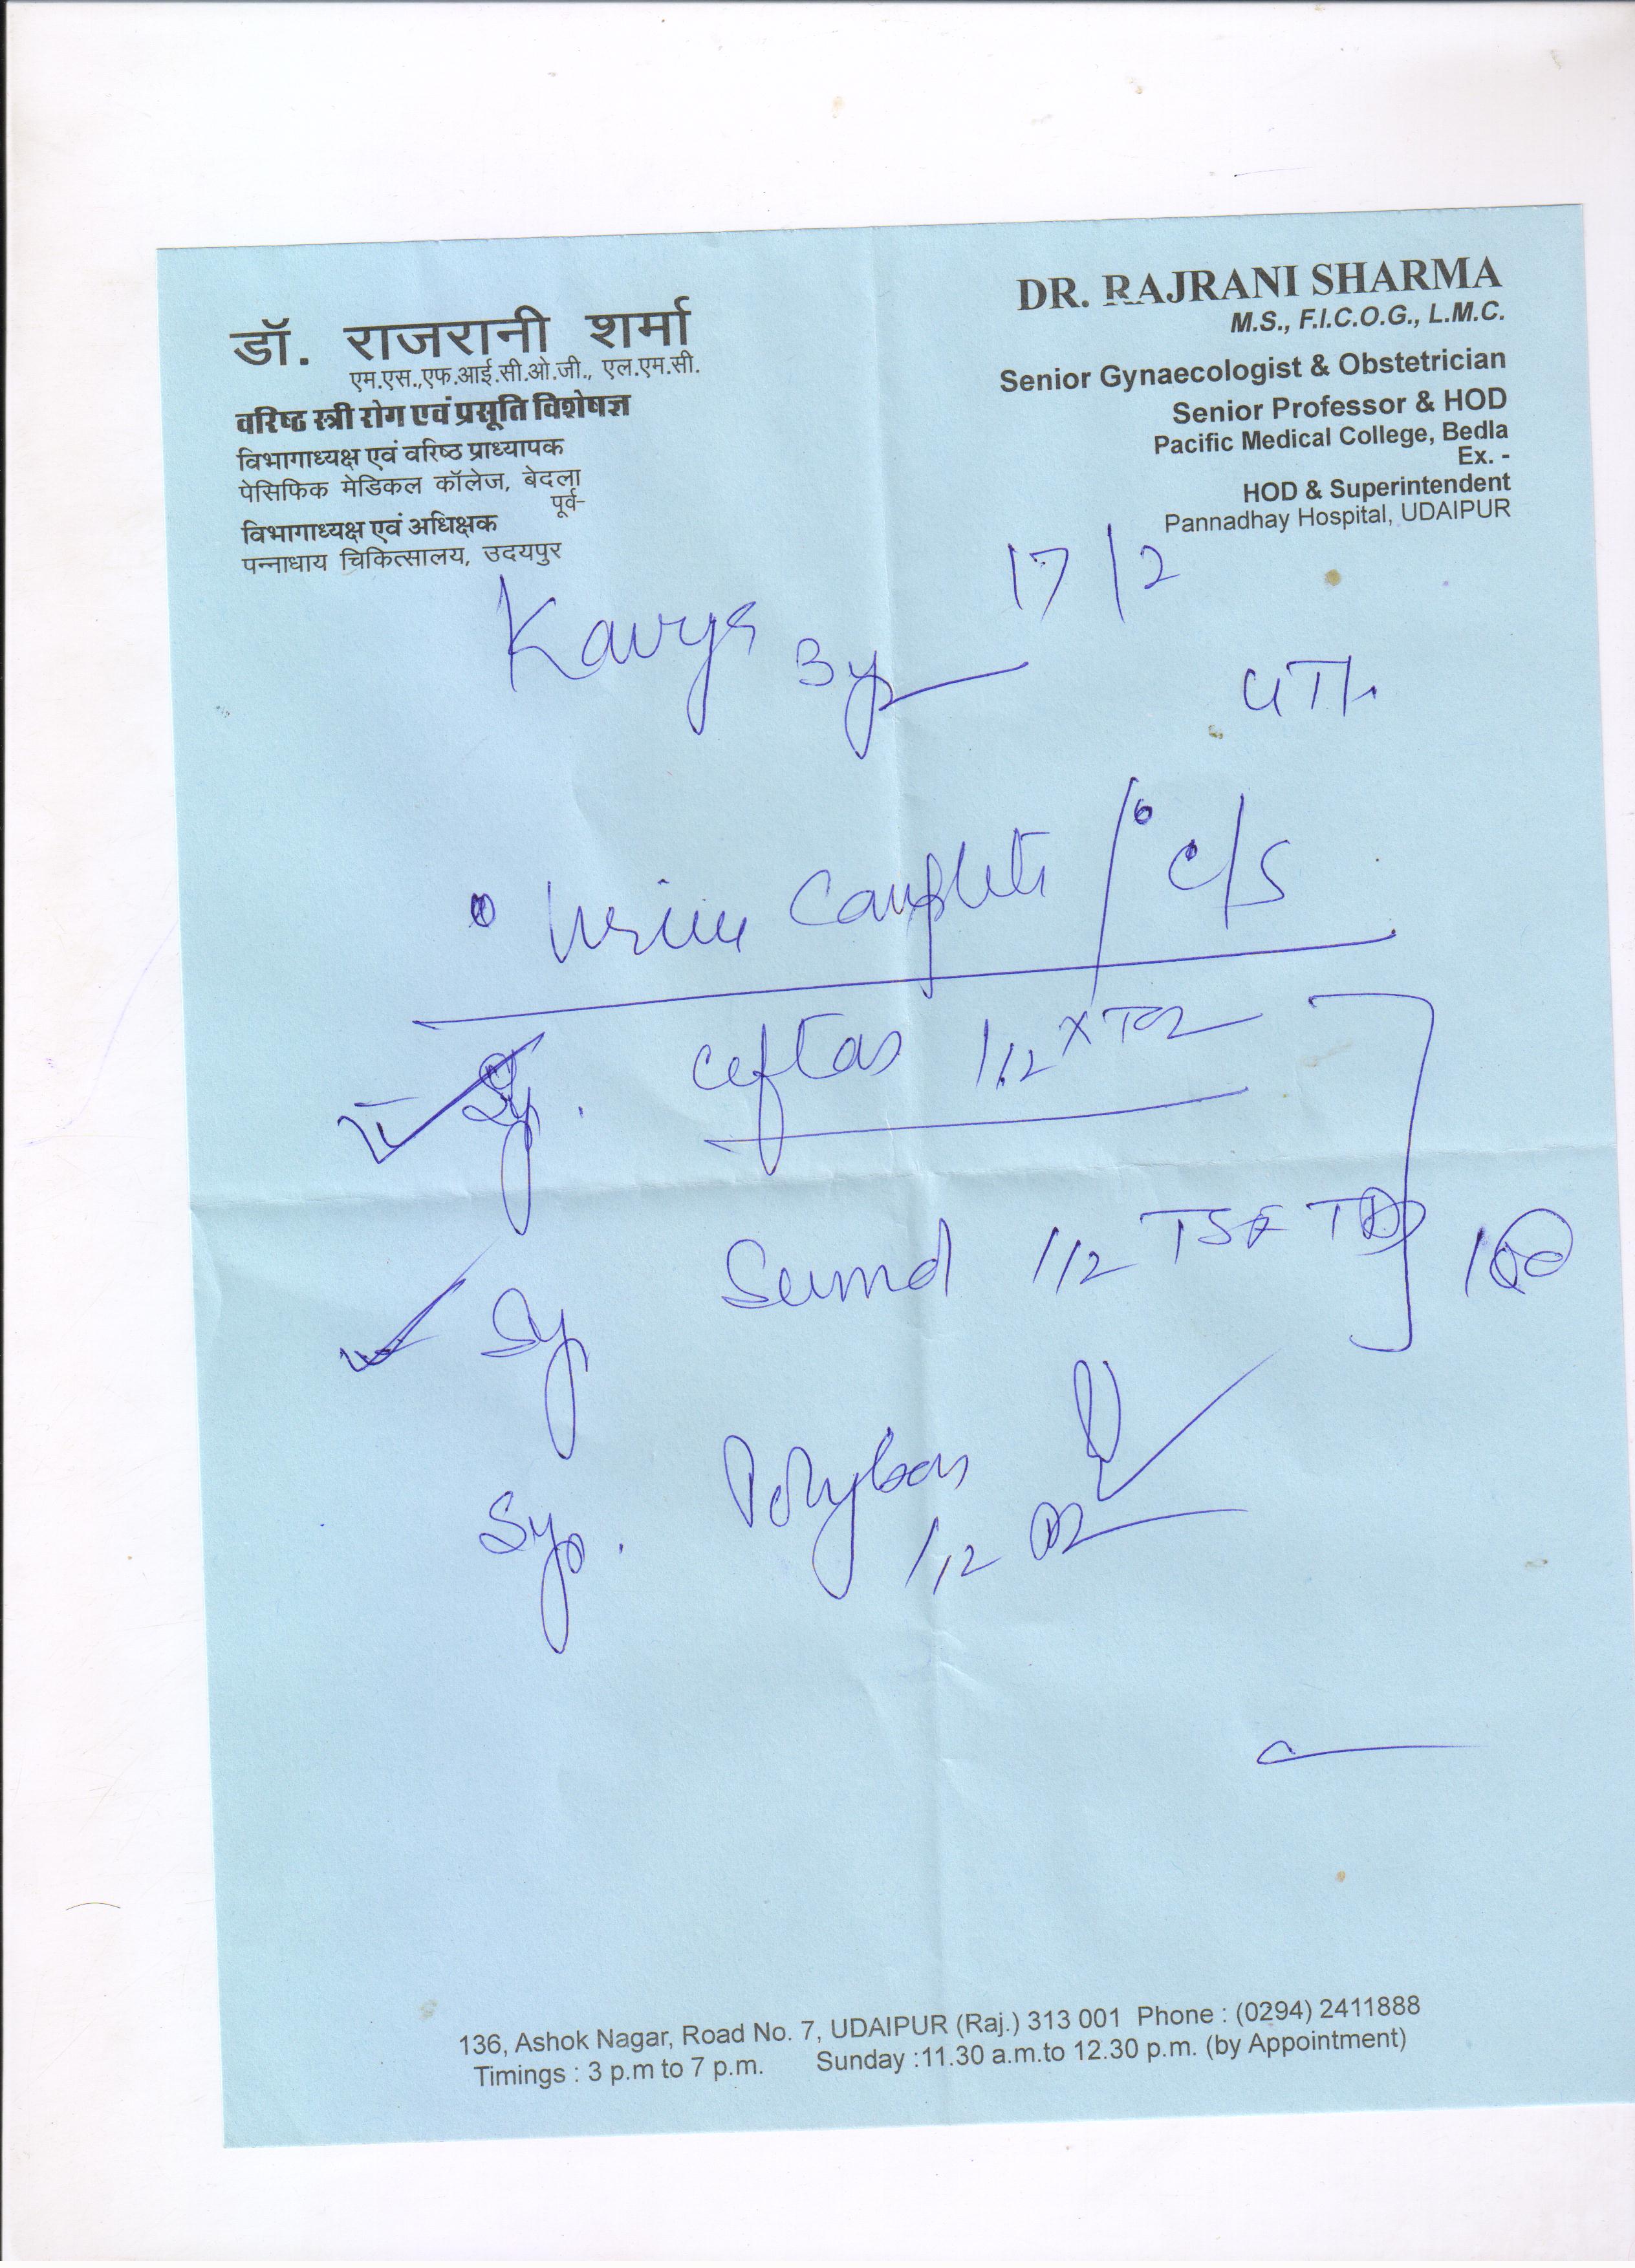 डॉ. राजरानी शर्मा
एम.एस.,एफ.आई.सी.ओ.जी., एल.एम.सी.
वरिष्ठ स्त्री रोग एवं प्रसूति विशेषज्ञ
विभागाध्यक्ष एवं वरिष्ठ प्राध्यापक
पेसिफिक मेडिकल कॉलेज, बेदला
पूर्व-
विभागाध्यक्ष एवं अधिक्षक
पन्नाधाय चिकित्सालय, उदयपुर
DR. RAJRANI SHARMA
M.S., F.I.C.O.G., L.M.C.
Senior Gynaecologist & Obstetrician
Senior Professor & HOD
Pacific Medical College, Bedla
Ex. -
HOD & Superintendent
Pannadhay Hospital, UDAIPUR
17/2
Kavya 3y
Urine Complete / c/s
Sy. Ceftas 1/2 X
Sy 1/2 TSF
Syp. Polybon
1/2
136, Ashok Nagar, Road No. 7, UDAIPUR (Raj.) 313 001 Phone : (0294) 2411888
Timings : 3 p.m to 7 p.m. Sunday :11.30 a.m.to 12.30 p.m. (by Appointment)